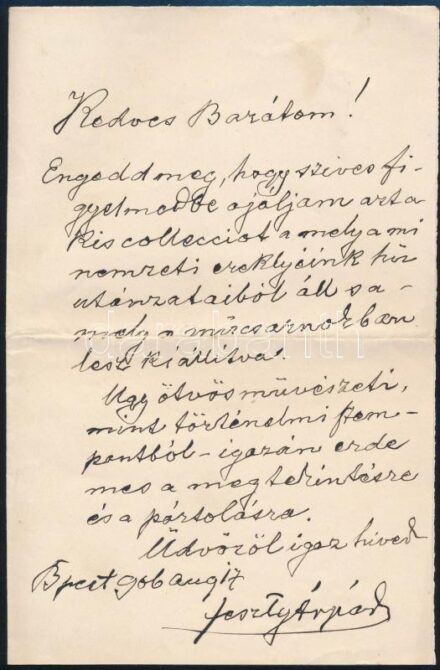 Kedves Barátom!
Engedd meg, hogy szives fi-
gyelmedbe ajáljam azt a
kis collecciot a mely a mi
nemzeti ereklyéink hű
utánzataiból áll s a-
mely a műcsarnokban
lesz kiállitva.
Ugy ötvösművészeti,
mint történelmi szem-
pontból - igazán érde
mes a megtekintésre
és a pártolásra.
Üdvözöl igaz hived
Bpest 906 aug 17
Feszty Árpád
darabanth